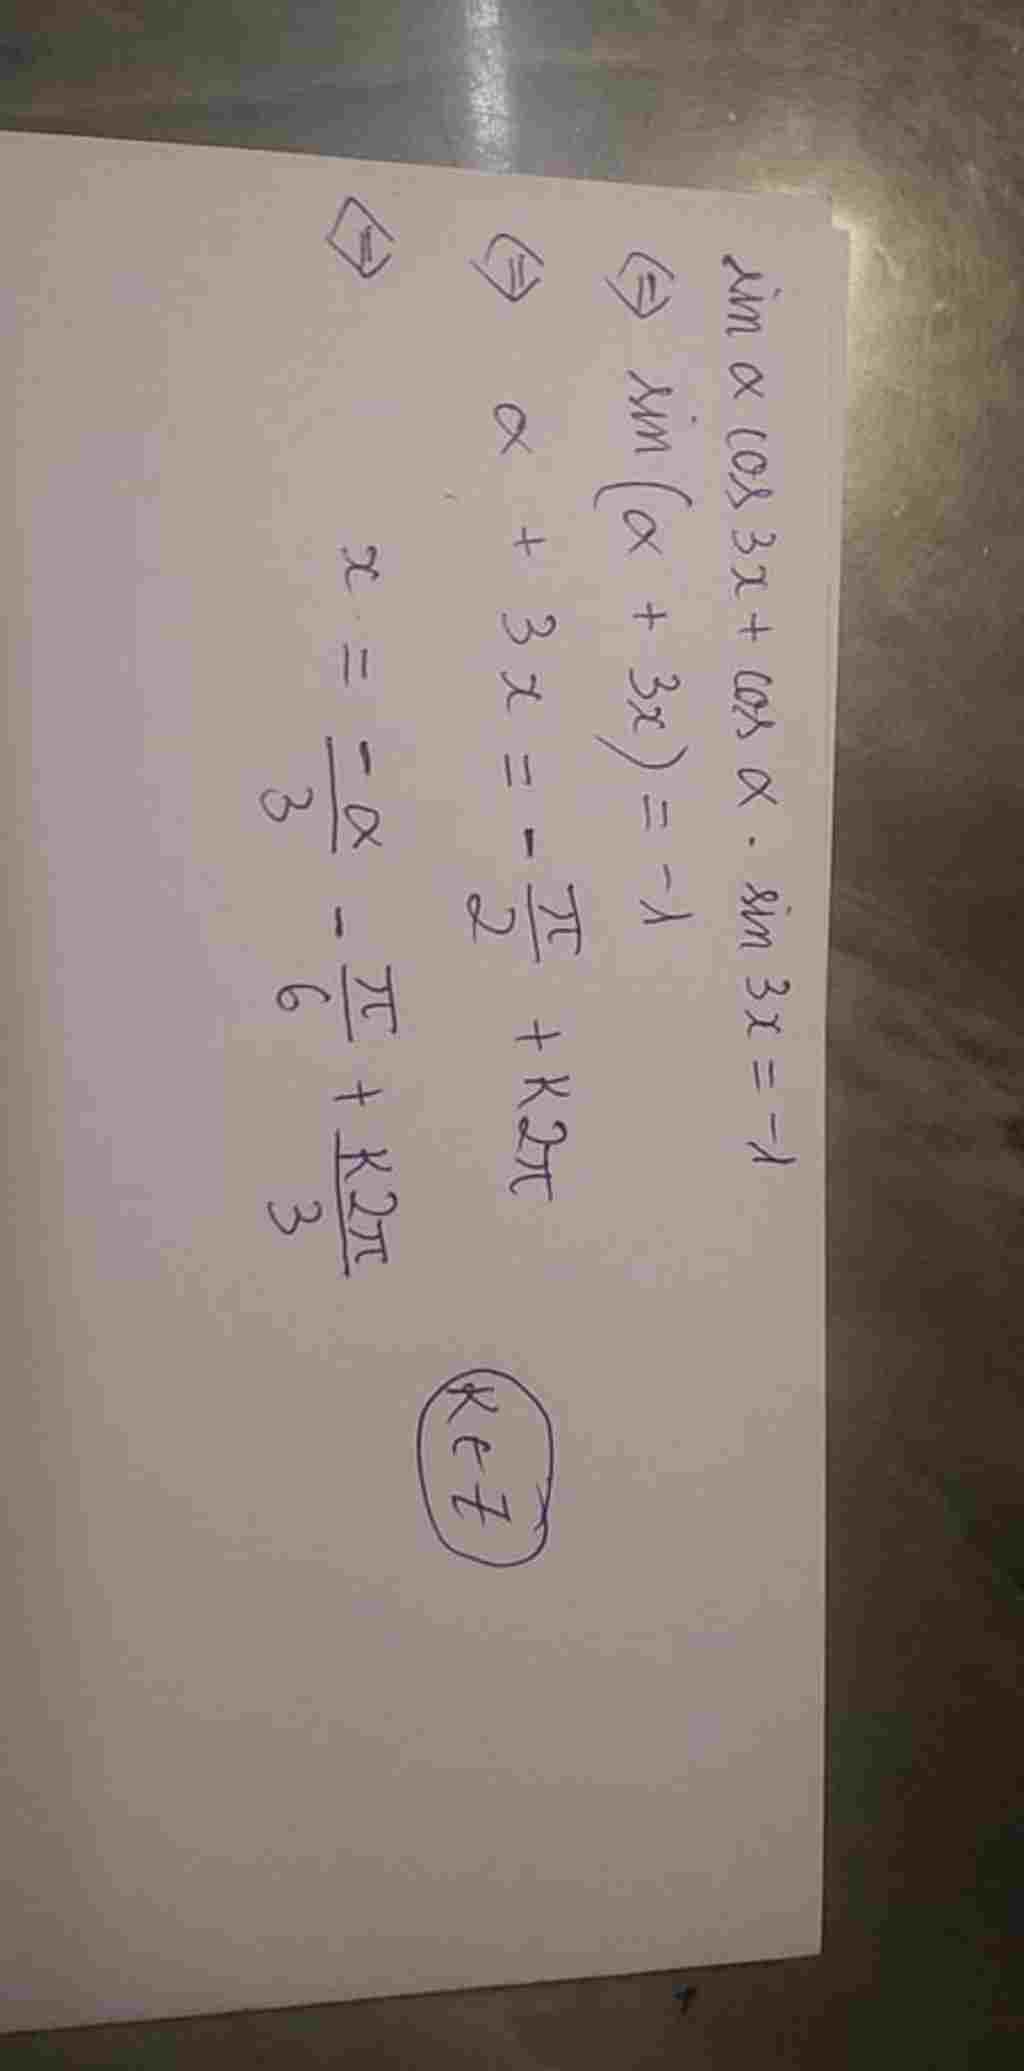 sin α cos 3x + cos α . sin 3x = -1
⇔ sin(α + 3x) = -1
⇔ α + 3x = - π/2 + k2π
k ∈ Z
⇔ x = -α/3 - π/6 + k2π/3